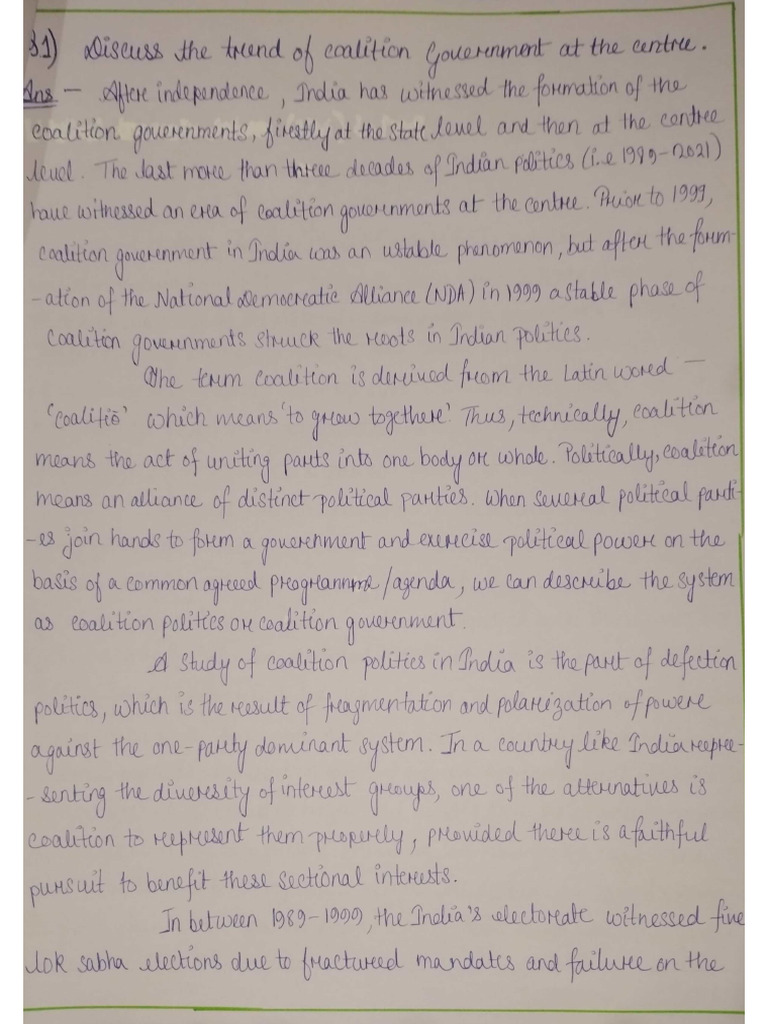 31) Discuss the trend of coalition Government at the centre.
Ans - After independence, India has witnessed the formation of the
coalition governments, firstly at the state level and then at the centre
level. The last more than three decades of Indian politics (i.e 1989-2021)
have witnessed an era of coalition governments at the centre. Prior to 1999,
coalition government in India was an ustable phenomenon, but after the form-
-ation of the National Democratic Alliance (NDA) in 1999 a stable phase of
coalition governments struck the roots in Indian politics.
The term coalition is derived from the Latin word —
'coalitiō' which means 'to grow together'. Thus, technically, coalition
means the act of uniting parts into one body or whole. Politically, coalition
means an alliance of distinct political parties. When several political parti-
-es join hands to form a government and exercise political power on the
basis of a common agreed programme/agenda, we can describe the system
as coalition politics or coalition government.
A study of coalition politics in India is the part of defection
politics, which is the result of fragmentation and polarization of power
against the one-party dominant system. In a country like India repre-
-senting the diversity of interest groups, one of the alternatives is
coalition to represent them properly, provided there is a faithful
pursuit to benefit these sectional interests.
In between 1989-1999, the India's electorate witnessed five
lok sabha elections due to fractured mandates and failure on the